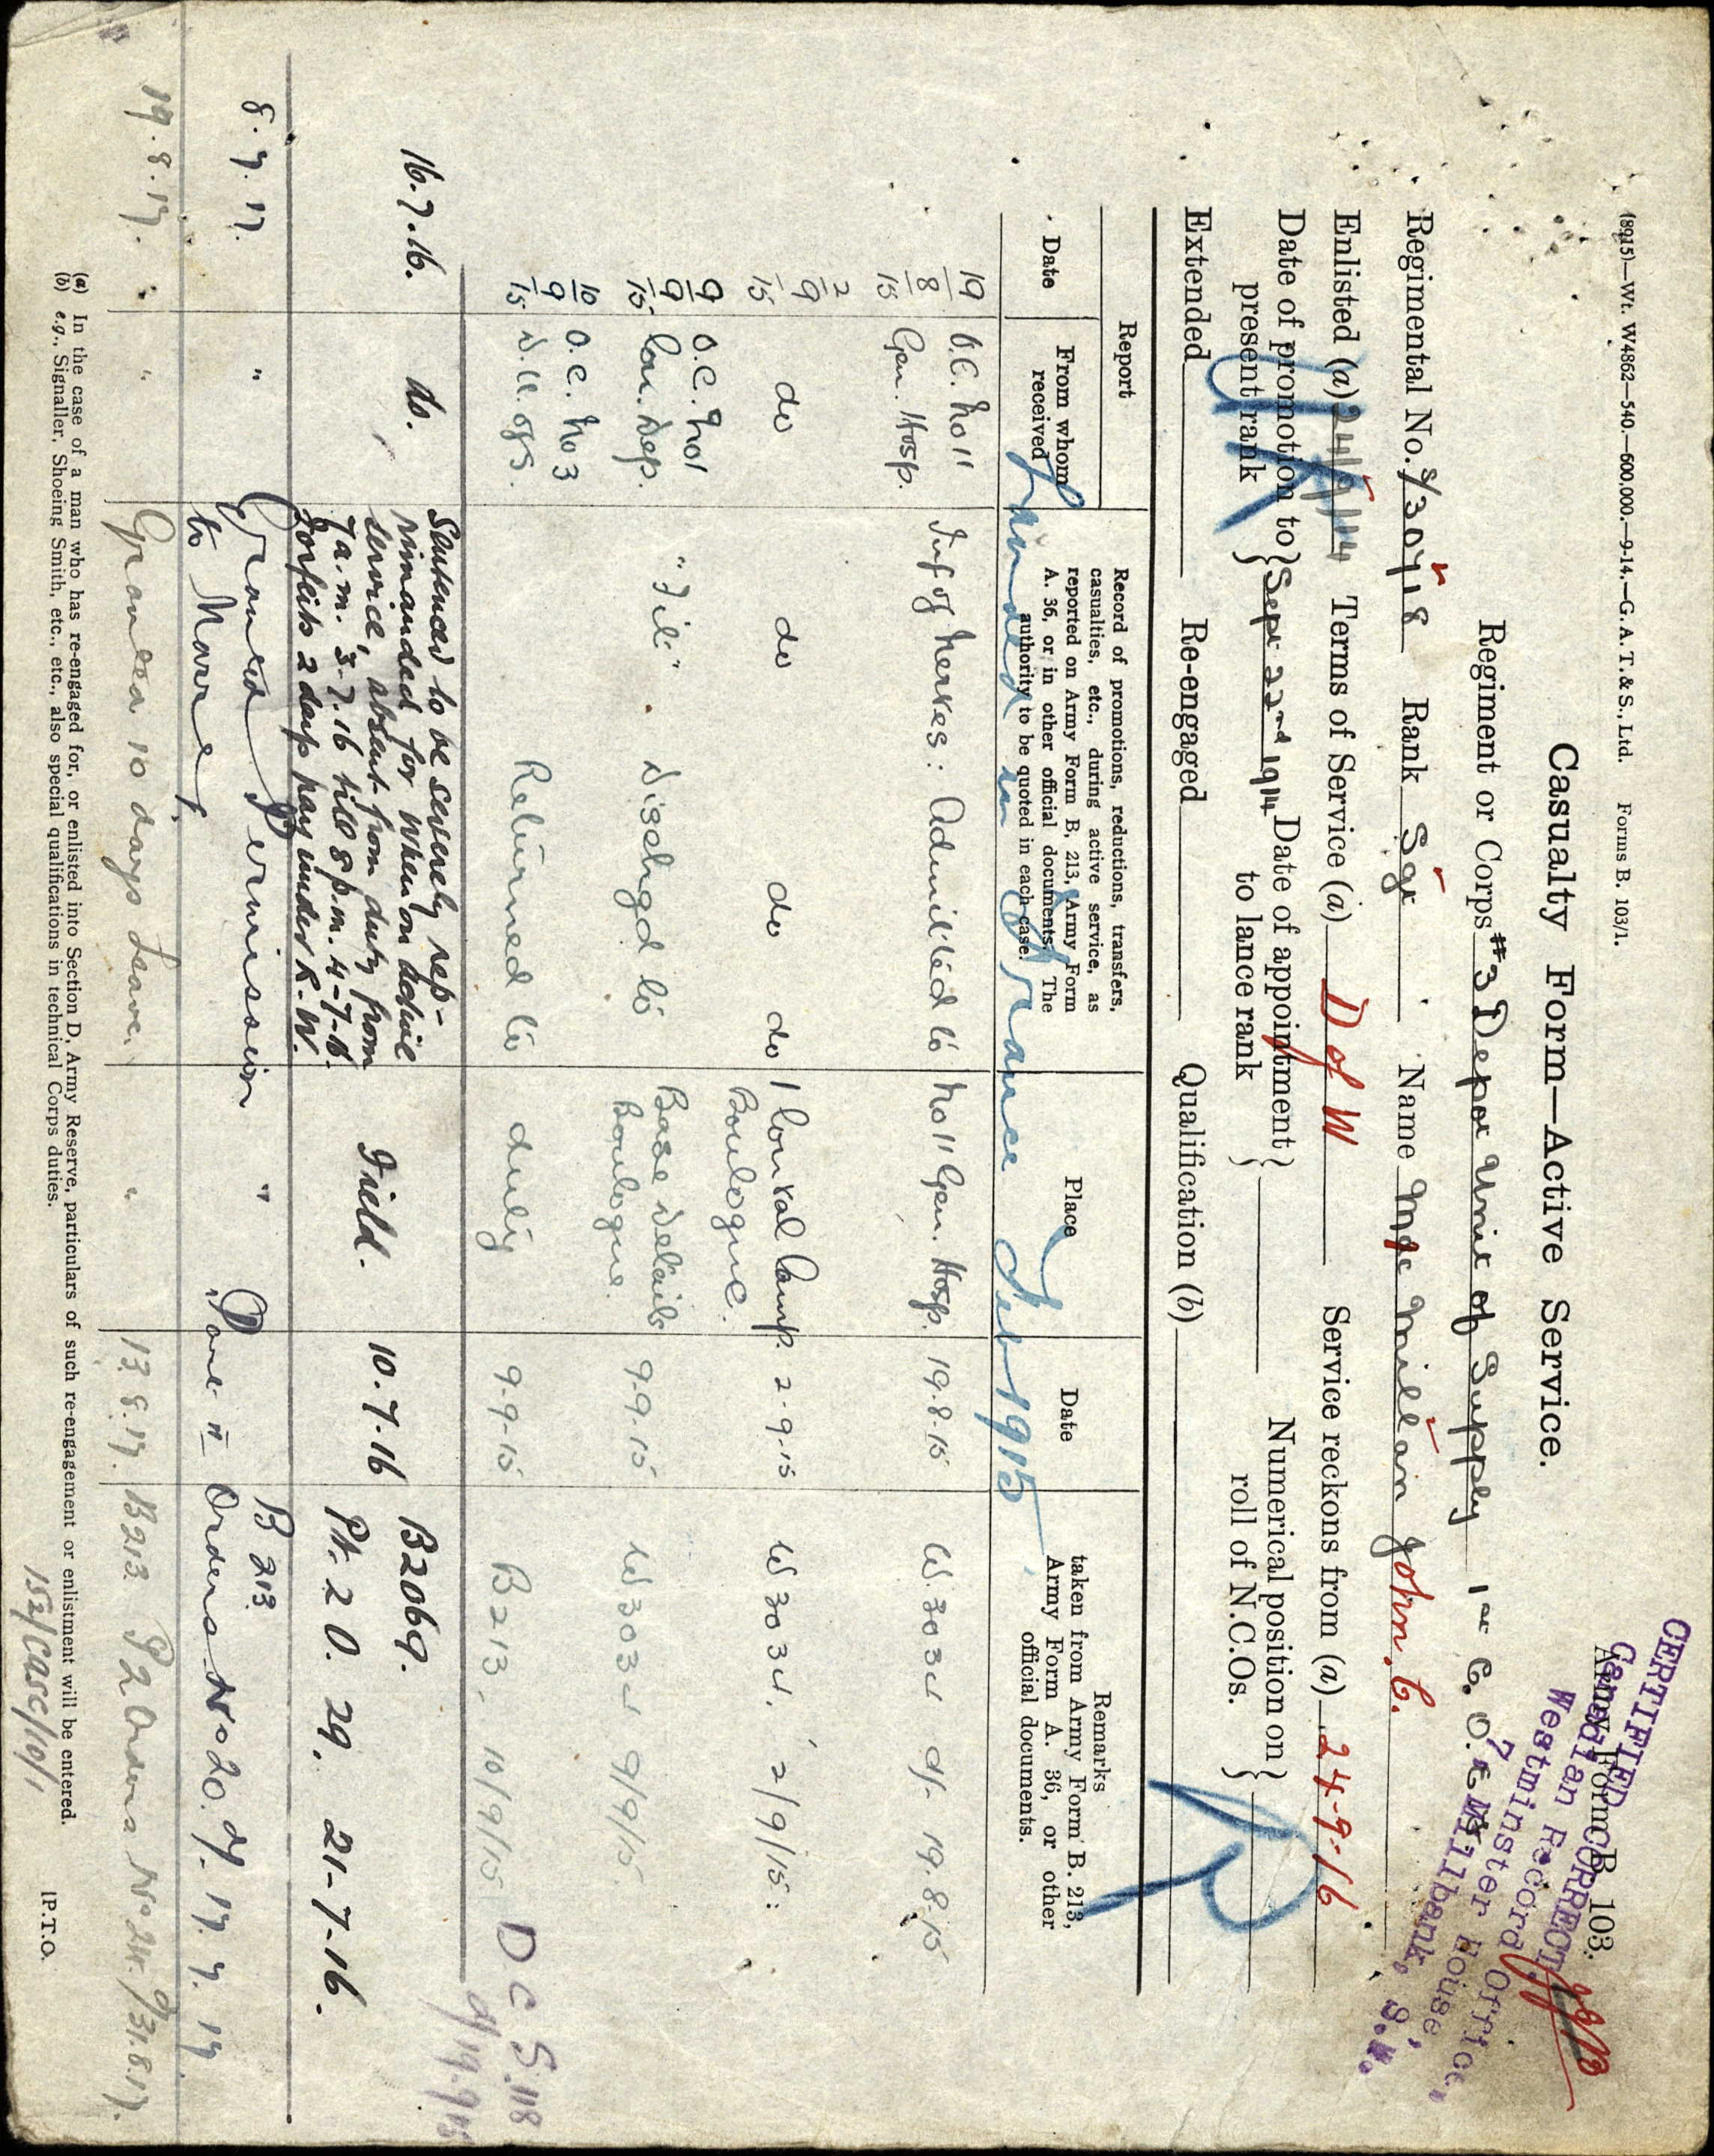 (8915)—Wt. W4862—540.—600,000.—9-14.—G. A. T. & S., Ltd. Forms B. 103/1.
CERTIFIED CORRECT.
Army Form B. 103.
Canadian Record Office,
Westminster House,
7 Millbank, S.W.
Casualty Form—Active Service.
Regiment or Corps #3 Depot Unit of Supply 1st C. O.
Regimental No. S/30718 Rank Sgt Name MacMillan John. C.
Enlisted (a) 24/9/14 Terms of Service (a) D of W Service reckons from (a) 24-9-16
Date of promotion to present rank } Sept 22nd 1914 Date of appointment to lance rank } Numerical position on roll of N.C.Os. }
Extended Re-engaged Qualification (b)
Report
Date
From whom received
Record of promotions, reductions, transfers, casualties, etc., during active service, as reported on Army Form B. 213, Army Form A. 36, or in other official documents. The authority to be quoted in each case.
Place
Date
Remarks
taken from Army Form B. 213, Army Form A. 36, or other official documents.
Landed in France Feb 1915
19/8/15 O.C. No 11 Gen. Hosp. Inf of Nerves: Admitted to No 11 Gen. Hosp. 19.8.15 W. 3034 19.8.15
2/9/15 do do do do 1 Conval Camp. Boulogne. 2-9-15 W 3034, 2/9/15:
9/9/15 O.C. No 1 Con. Dep. "Fit". Dischgd to Base Details Boulogne. 9-9-15 W3034 9/9/15
10/9/15 O.C. No 3 D.U. of S. Returned to duty 9-9-15 B213, 10/9/15 D C S.118
16.7.16. do. Sentenced to be severely rep-
rimanded for when on active
service, absent from duty from
7 a.m. 3-7.16 till 8 p.m. 4-7-16.
Forfeits 2 days pay under R.W. Field. 10.7.16 B2069. Pt. 2 O. 29. 21-7-16.
8.7.17. " Granted Permission
to Marry " B 213
Part II Orders No 20. d/. 17.7.17.
19.8.17. " Granted 10 days Leave. " 13.8.17. B213 P2 Orders No 24. d/31.8.17.
(a) In the case of a man who has re-engaged for, or enlisted into Section D, Army Reserve, particulars of such re-engagement or enlistment will be entered.
(b) e.g., Signaller, Shoeing Smith, etc., etc., also special qualifications in technical Corps duties.
152/CASC/10/1
[P.T.O.